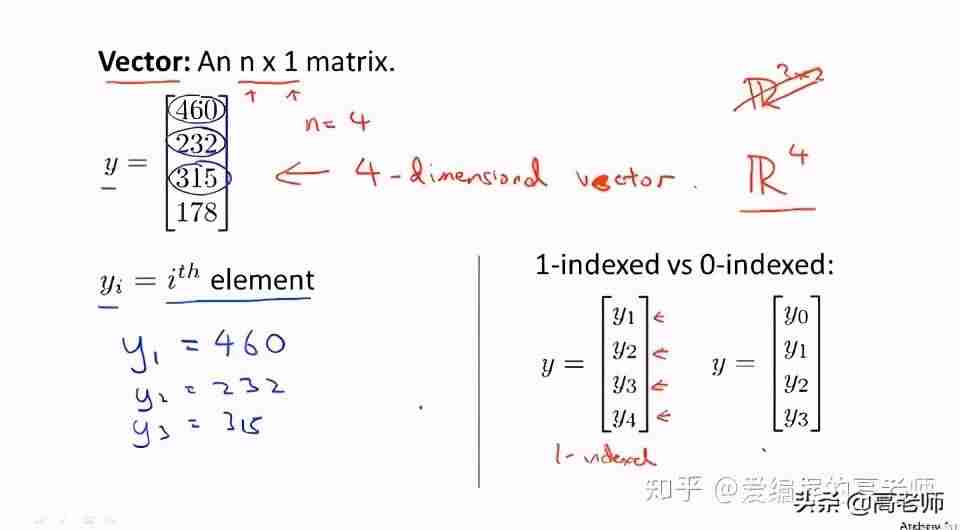 Vector: An n x 1 matrix.
y = [460 232 315 178]
n = 4
← 4-dimensional vector.
ℝ³ˣ²
ℝ⁴
yᵢ = iᵗʰ element
y₁ = 460
y₂ = 232
y₃ = 315
1-indexed vs 0-indexed:
y = [y₁ y₂ y₃ y₄]
y = [y₀ y₁ y₂ y₃]
1-indexed
知乎 @爱编程的高老师
头条 @高老师
Andrew